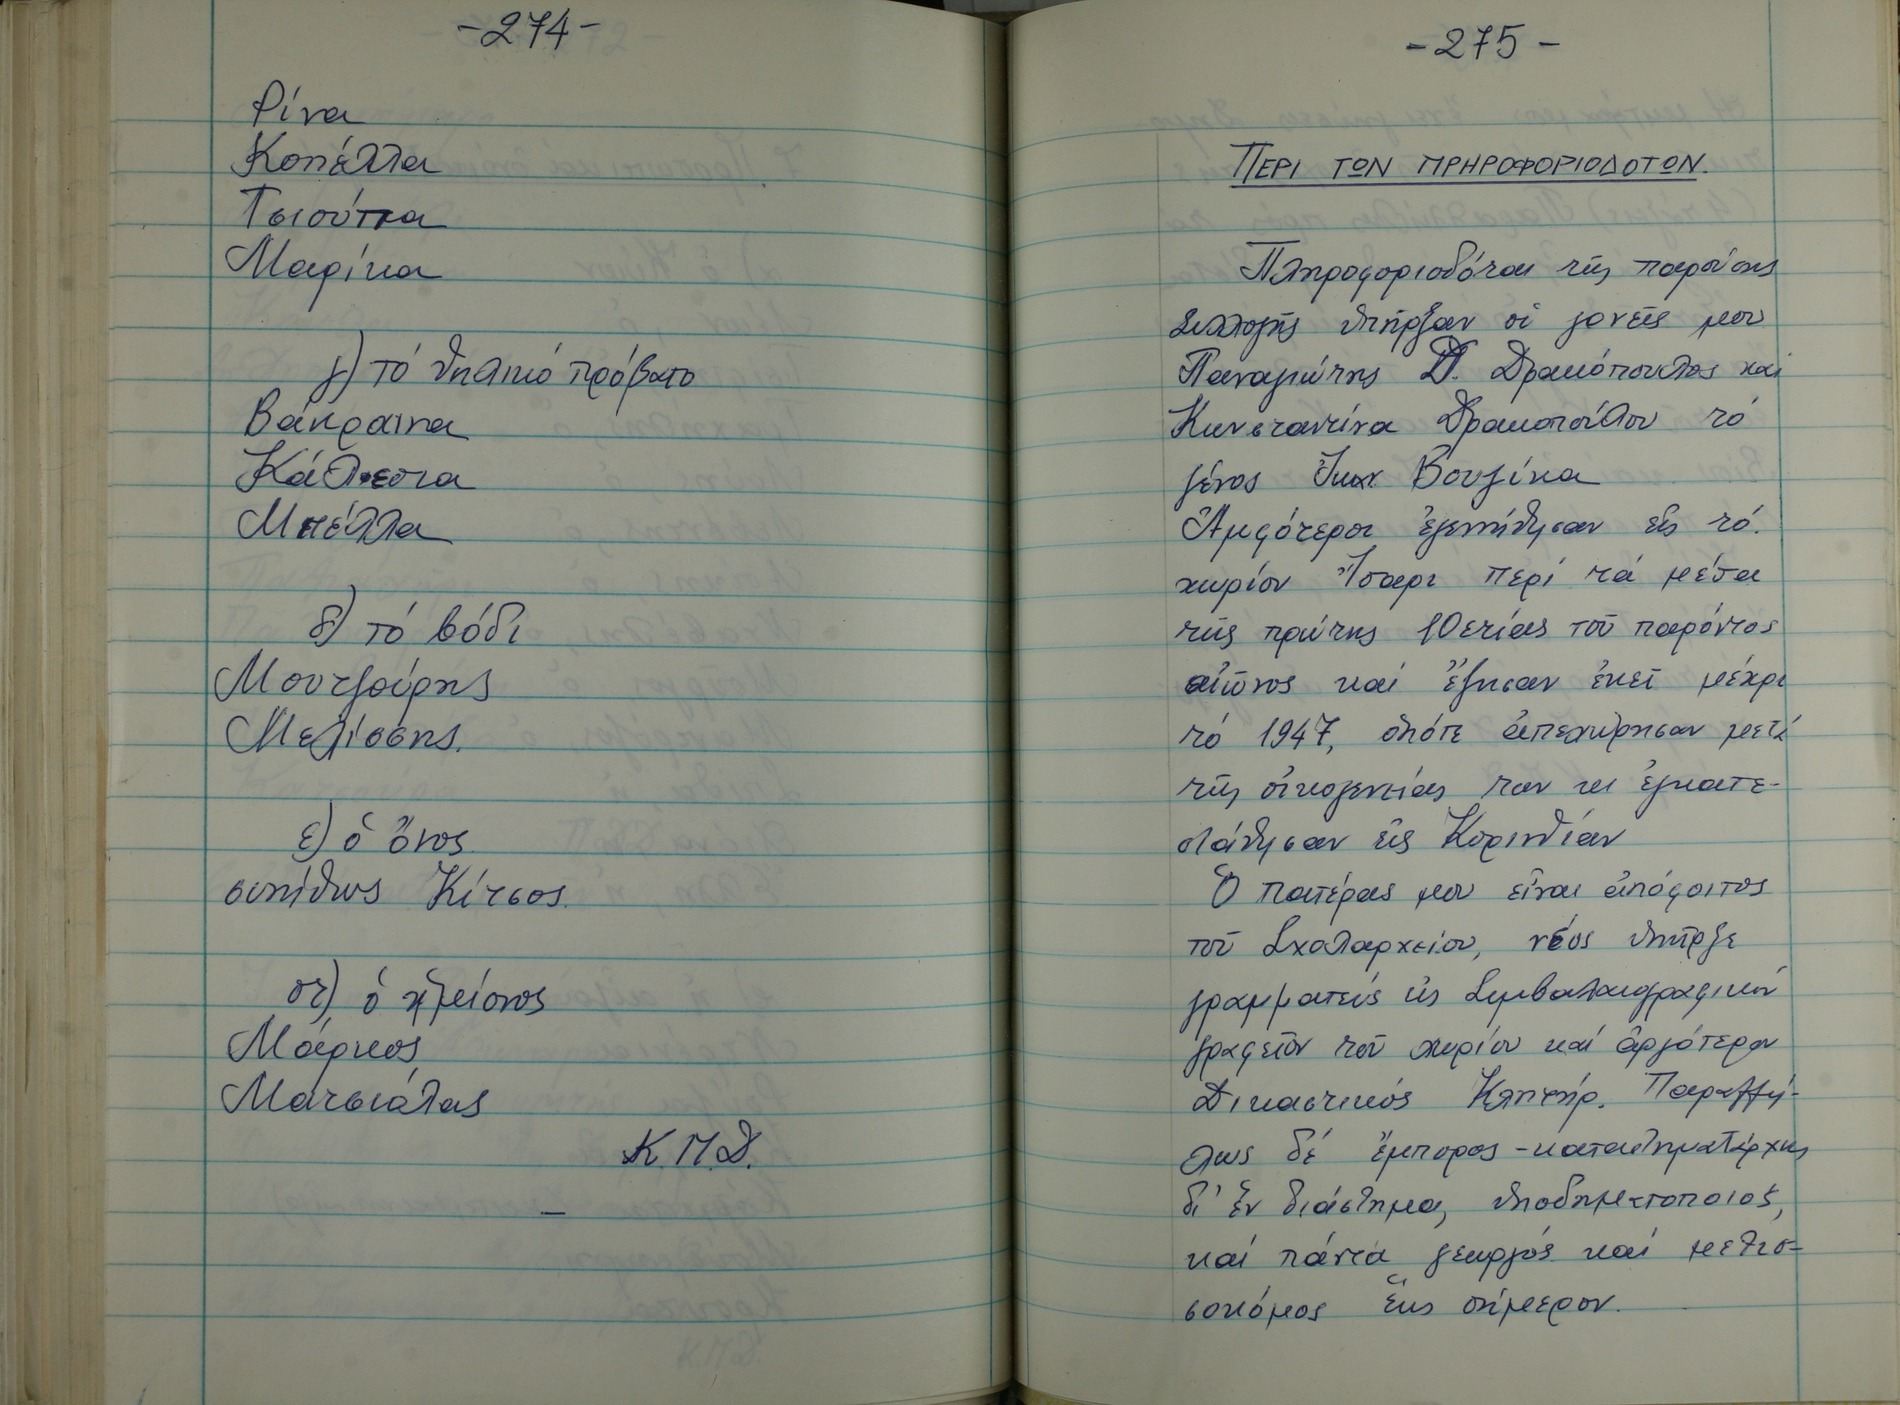 -274-
Ρίνα
Κοπέλλα
Τσιούπα
Μαρίκα
γ) τό θηλικό πρόβατο
Βάκραινα
Κάλεσια
Μπέλλα
δ) τό βόδι
Μουτζούρης
Μελίσσης.
ε) ὁ ὄνος
συνήθως Κίτσος.
στ) ὁ ἡμείονος
Μάρκος
Ματσιόλας
Κ.Π.Δ.
-275-
ΠΕΡΙ ΤΩΝ ΠΡΗΡΟΦΟΡΙΟΔΟΤΩΝ.
Πληροφοριοδόται τῆς παρούσης
Συλλογῆς ὑπῆρξαν οἱ γονεῖς μου
Παναγιώτης Δ. Δρακόπουλος καί
Κωνσταντίνα Δρακοπούλου τό
γένος Ἰωαν. Βουγίκα
Ἀμφότεροι ἐγεννήθησαν εἰς τό
χωρίον Ἴσαρι περί τά μέσα
τῆς πρώτης 10ετίας τοῦ παρόντος
αἰῶνος καί ἔζησαν ἐκεῖ μέχρι
τό 1947, ὁπότε ἀπεχώρησαν μετά
τῆς οἰκογενείας των κι ἐγκατε-
στάθησαν εἰς Κορινθίαν
Ὁ πατέρας μου εἶναι ἀπόφοιτος
τοῦ Σχολαρχείου, νέος ὑπῆρξε
γραμματεύς εἰς Συμβολαιογραφικόν
γραφεῖον τοῦ χωρίου καί ἀργότερον
Δικαστικός Κλητήρ. Παραλλή-
λως δέ ἔμπορος-καταστηματάρχης
δι' ἕν διάστημα, ὑποδηματοποιός,
καί πάντα γεωργός καί μελισ-
σοκόμος ἕως σήμερον.